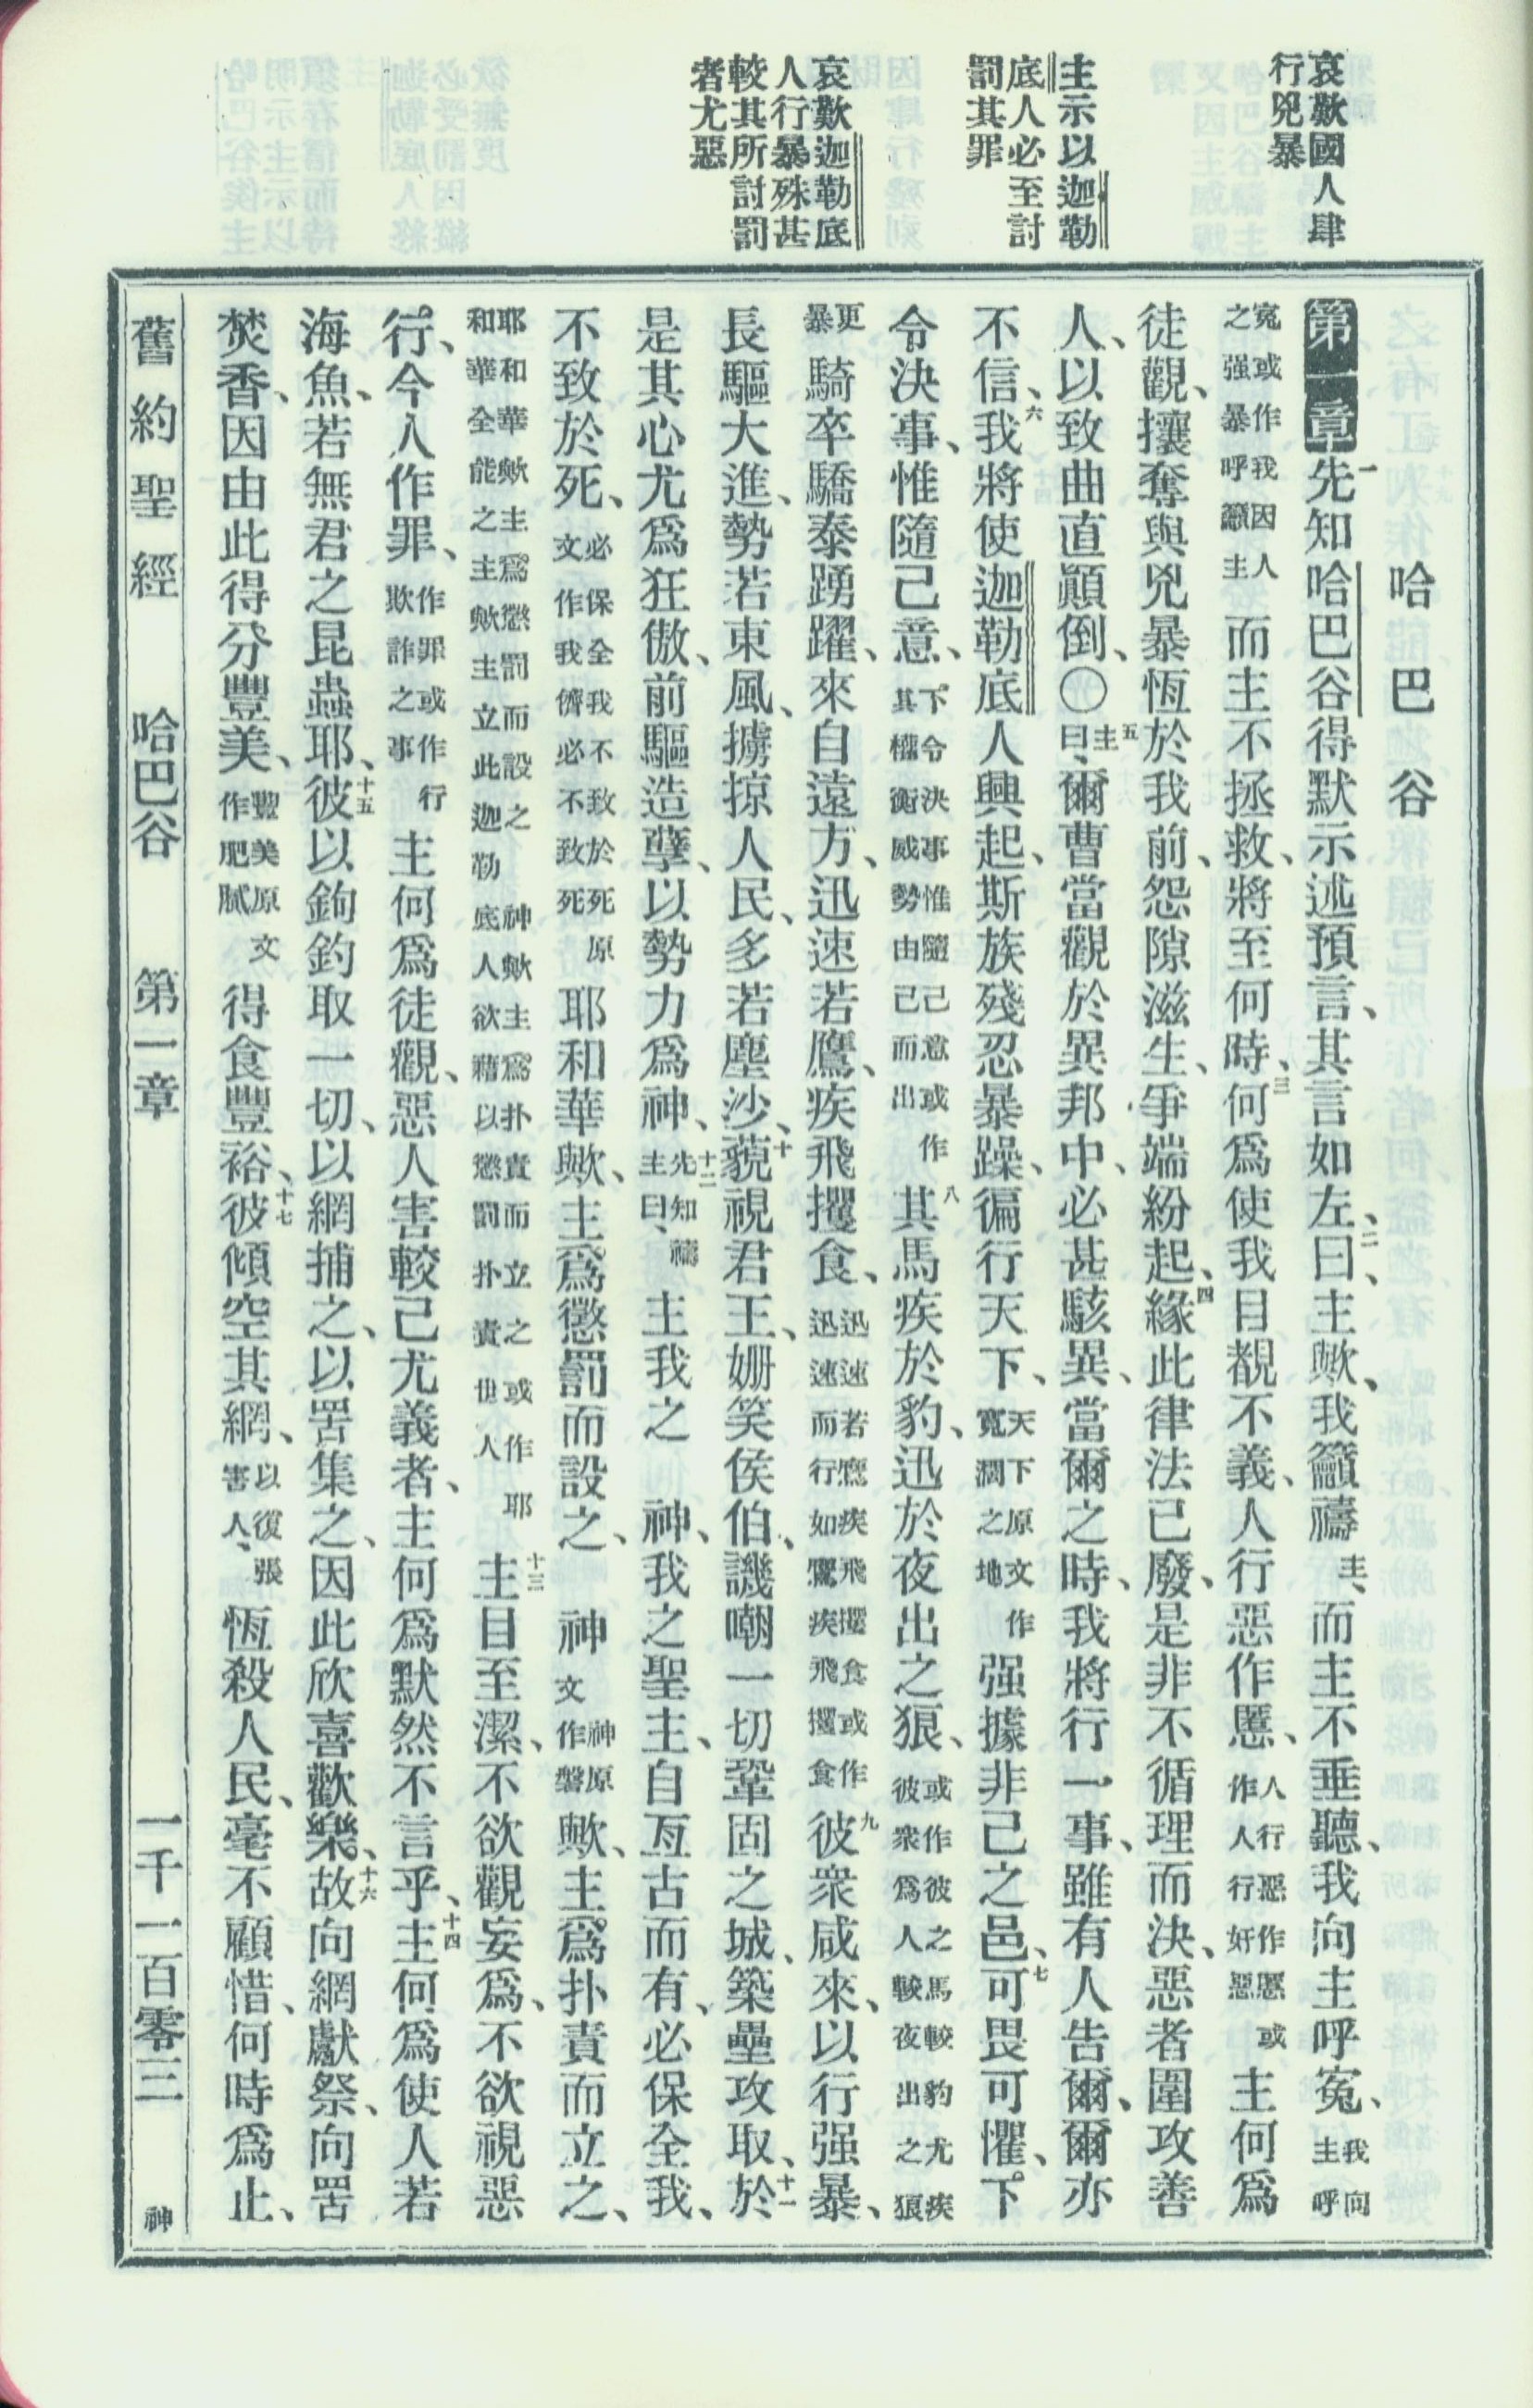 哀歎國人肆
行兇暴
主示以迦勒
底人必至討
罰其罪
哀歎迦勒底
人行暴殊甚
較其所討罰
者尤惡
哈巴谷
第一章一先知哈巴谷得默示述預言、其言如左、二曰、主歟、我籲禱主、而主不垂聽、我向主呼寃、我向主呼
寃或作我因人之强暴呼籲主而主不拯救、將至何時、三何爲使我目覩不義、人行惡作慝、人行惡作慝或作人行奸惡主何爲
徒觀、攘奪與兇暴恆於我前、怨隙滋生、爭端紛起、四緣此律法已廢、是非不循理而決、惡者圍攻善
人、以致曲直顚倒、〇五主曰、爾曹當觀於異邦中、必甚駭異、當爾之時、我將行一事、雖有人告爾、爾亦
不信、六我將使迦勒底人興起、斯族殘忍暴躁、徧行天下、天下原文作寬濶之地强據非己之邑、七可畏可懼、下
令決事、惟隨己意、下令決事惟隨己意或作其權衡威勢由己而出八其馬疾於豹、迅於夜出之狼、或作彼之馬較豹尤疾彼衆爲人較夜出之狼
更暴騎卒驕泰踴躍、來自遠方、迅速若鷹、疾飛攫食、迅速若鷹疾飛攫食或作迅速而行如鷹疾飛攫食九彼衆咸來、以行强暴、
長驅大進、勢若東風、擄掠人民、多若塵沙、十藐視君王、姍笑侯伯、譏嘲一切鞏固之城、築壘攻取、十一於
是其心尤爲狂傲、前驅造孽、以勢力爲神、十二先知禱主曰、主我之神、我之聖主、自亙古而有、必保全我、
不致於死、必保全我不致於死原文作我儕必不致死耶和華歟、主爲懲罰而設之、神神原文作磐歟、主爲扑責而立之、
耶和華歟主爲懲罰而設之神歟主爲扑責而立之或作耶和華全能之主歟主立此迦勒底人欲藉以懲罰扑責世人十三主目至潔、不欲觀妄爲、不欲視惡
行、今人作罪、作罪或作行欺詐之事主何爲徒觀、惡人害較己尤義者、主何爲默然不言乎、十四主何爲使人若
海魚、若無君之昆蟲耶、十五彼以鉤釣取一切、以網捕之、以罟集之、因此欣喜歡樂、十六故向網獻祭、向罟
焚香、因由此得分豐美、豐美原文作肥膩得食豐裕、十七彼傾空其網、以復張害人、恆殺人民、毫不顧惜、何時爲止、
舊約聖經 哈巴谷 第一章 一千一百零三 神